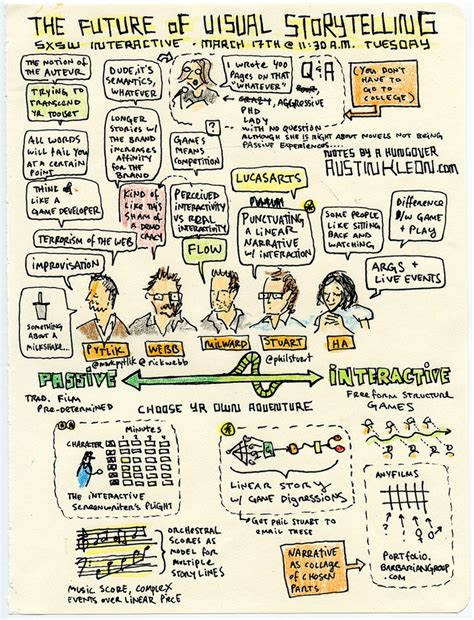 THE FUTURE OF VISUAL STORYTELLING
SXSW INTERACTIVE • MARCH 17TH @ 11:30 A.M. TUESDAY
THE NOTION OF
THE AUTEUR
DUDE, IT'S
SEMANTICS,
WHATEVER
I WROTE 400
PAGES ON THAT
"WHATEVER"
Q&A
(YOU DON'T
HAVE TO
GO TO
COLLEGE)
TRYING TO
TRANSCEND
YR TOOLSET
CRAZY, AGGRESSIVE
PHD
LADY
WITH NO QUESTION
ALTHOUGH SHE IS RIGHT ABOUT NOVELS NOT BEING
PASSIVE EXPERIENCES...
LONGER
STORIES W/
THE BRAND
INCREASES
AFFINITY
FOR THE
BRAND
GAMES
MEANS
COMPETITION
ALL WORDS
WILL FAIL YOU
AT A CERTAIN
POINT
NOTES BY A HUNGOVER
AUSTINKLEON.COM
THINK OF
LIKE A
GAME DEVELOPER
KIND OF
LIKES THIS
SHAM OF
A DEMO
CRACY
PERCEIVED
INTERACTIVITY
VS REAL
INTERACTIVITY
LUCASARTS
PUNCTUATING
A LINEAR
NARRATIVE
W/ INTERACTION
SOME PEOPLE
LIKE SITTING
BACK AND
WATCHING
DIFFERENCE
B/W GAME
+ PLAY
TERRORISM OF THE WEB
FLOW
ARGS +
LIVE EVENTS
IMPROVISATION
SOMETHING
ABOUT A
MILKSHAKE...
PYTLIK
WEBB
MILWARD
STUART
HA
@markpytlik
@rickwebb
@philstuart
PASSIVE
INTERACTIVE
TRAD. FILM
PRE-DETERMINED
CHOOSE YR OWN ADVENTURE
FREEFORM STRUCTURE
GAMES
MINUTES
CHARACTER
THE INTERACTIVE
SCREENWRITER'S PLIGHT
LINEAR STORY
W/ GAME DIGRESSIONS
GET PHIL STUART TO
EMAIL THESE
ANYFILMS
PORTFOLIO.
BARBARIANGROUP
.COM
ORCHESTRAL
SCORES AS
MODEL FOR
MULTIPLE
STORY LINES
NARRATIVE
AS COLLAGE
OF CHOSEN
PARTS
MUSIC SCORE, COMPLEX
EVENTS OVER LINEAR PIECE